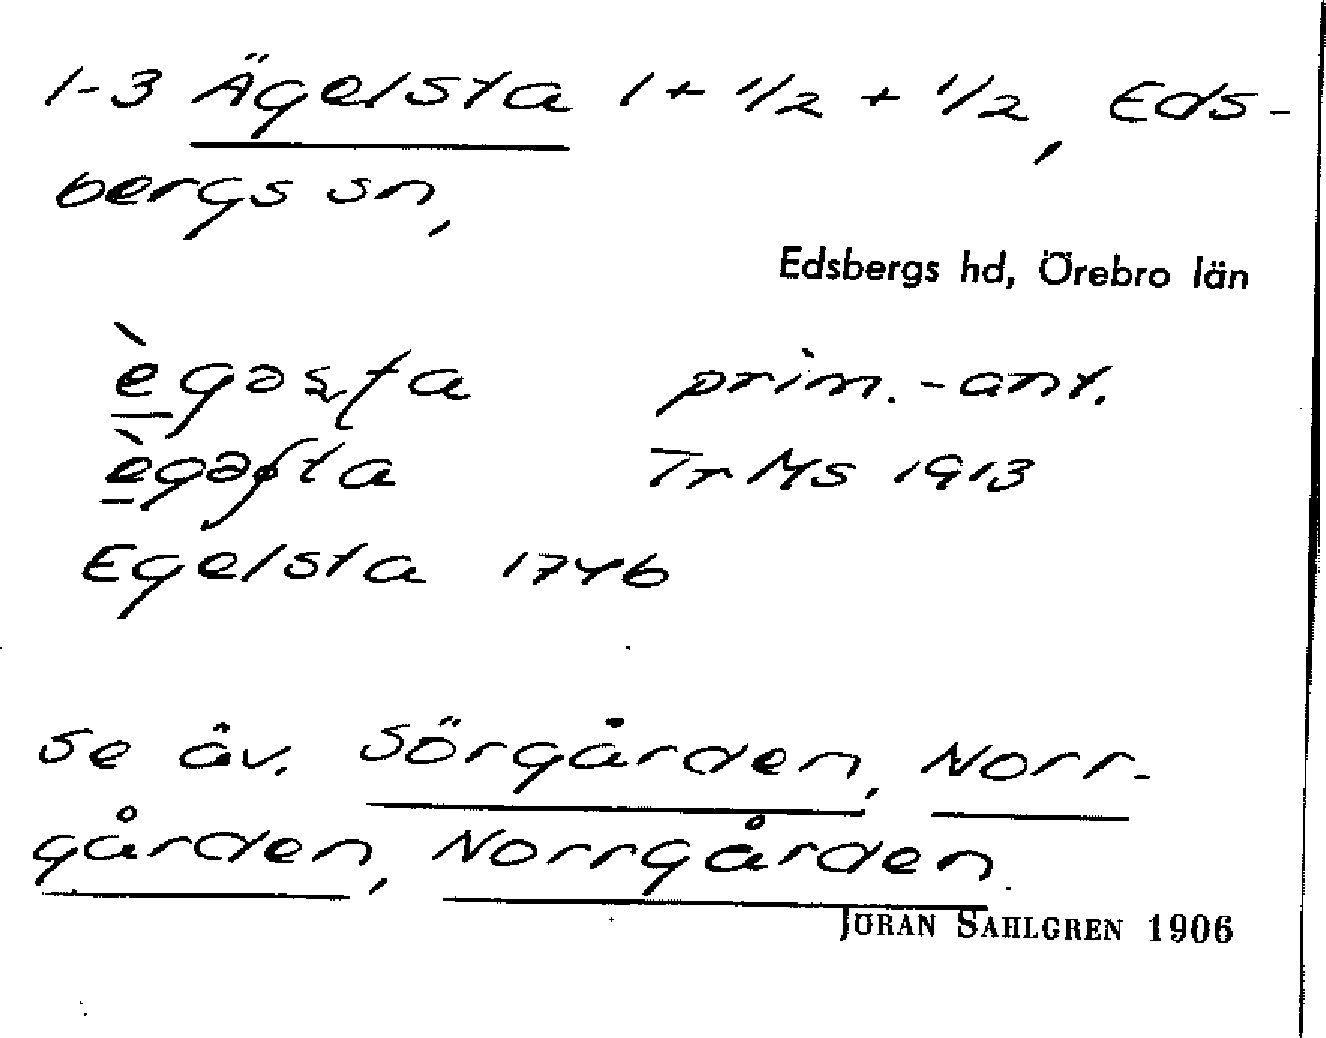 1-3 Ägelsta 1 + 1/2 + 1/2, Eds-
bergs sn,
Edsbergs hd, Örebro län
prim.-ant.
Tr MS 1913
Egelsta 1746
se äv. Sörgården, Norr-
gården, Norrgården.
JÖRAN SAHLGREN 1906